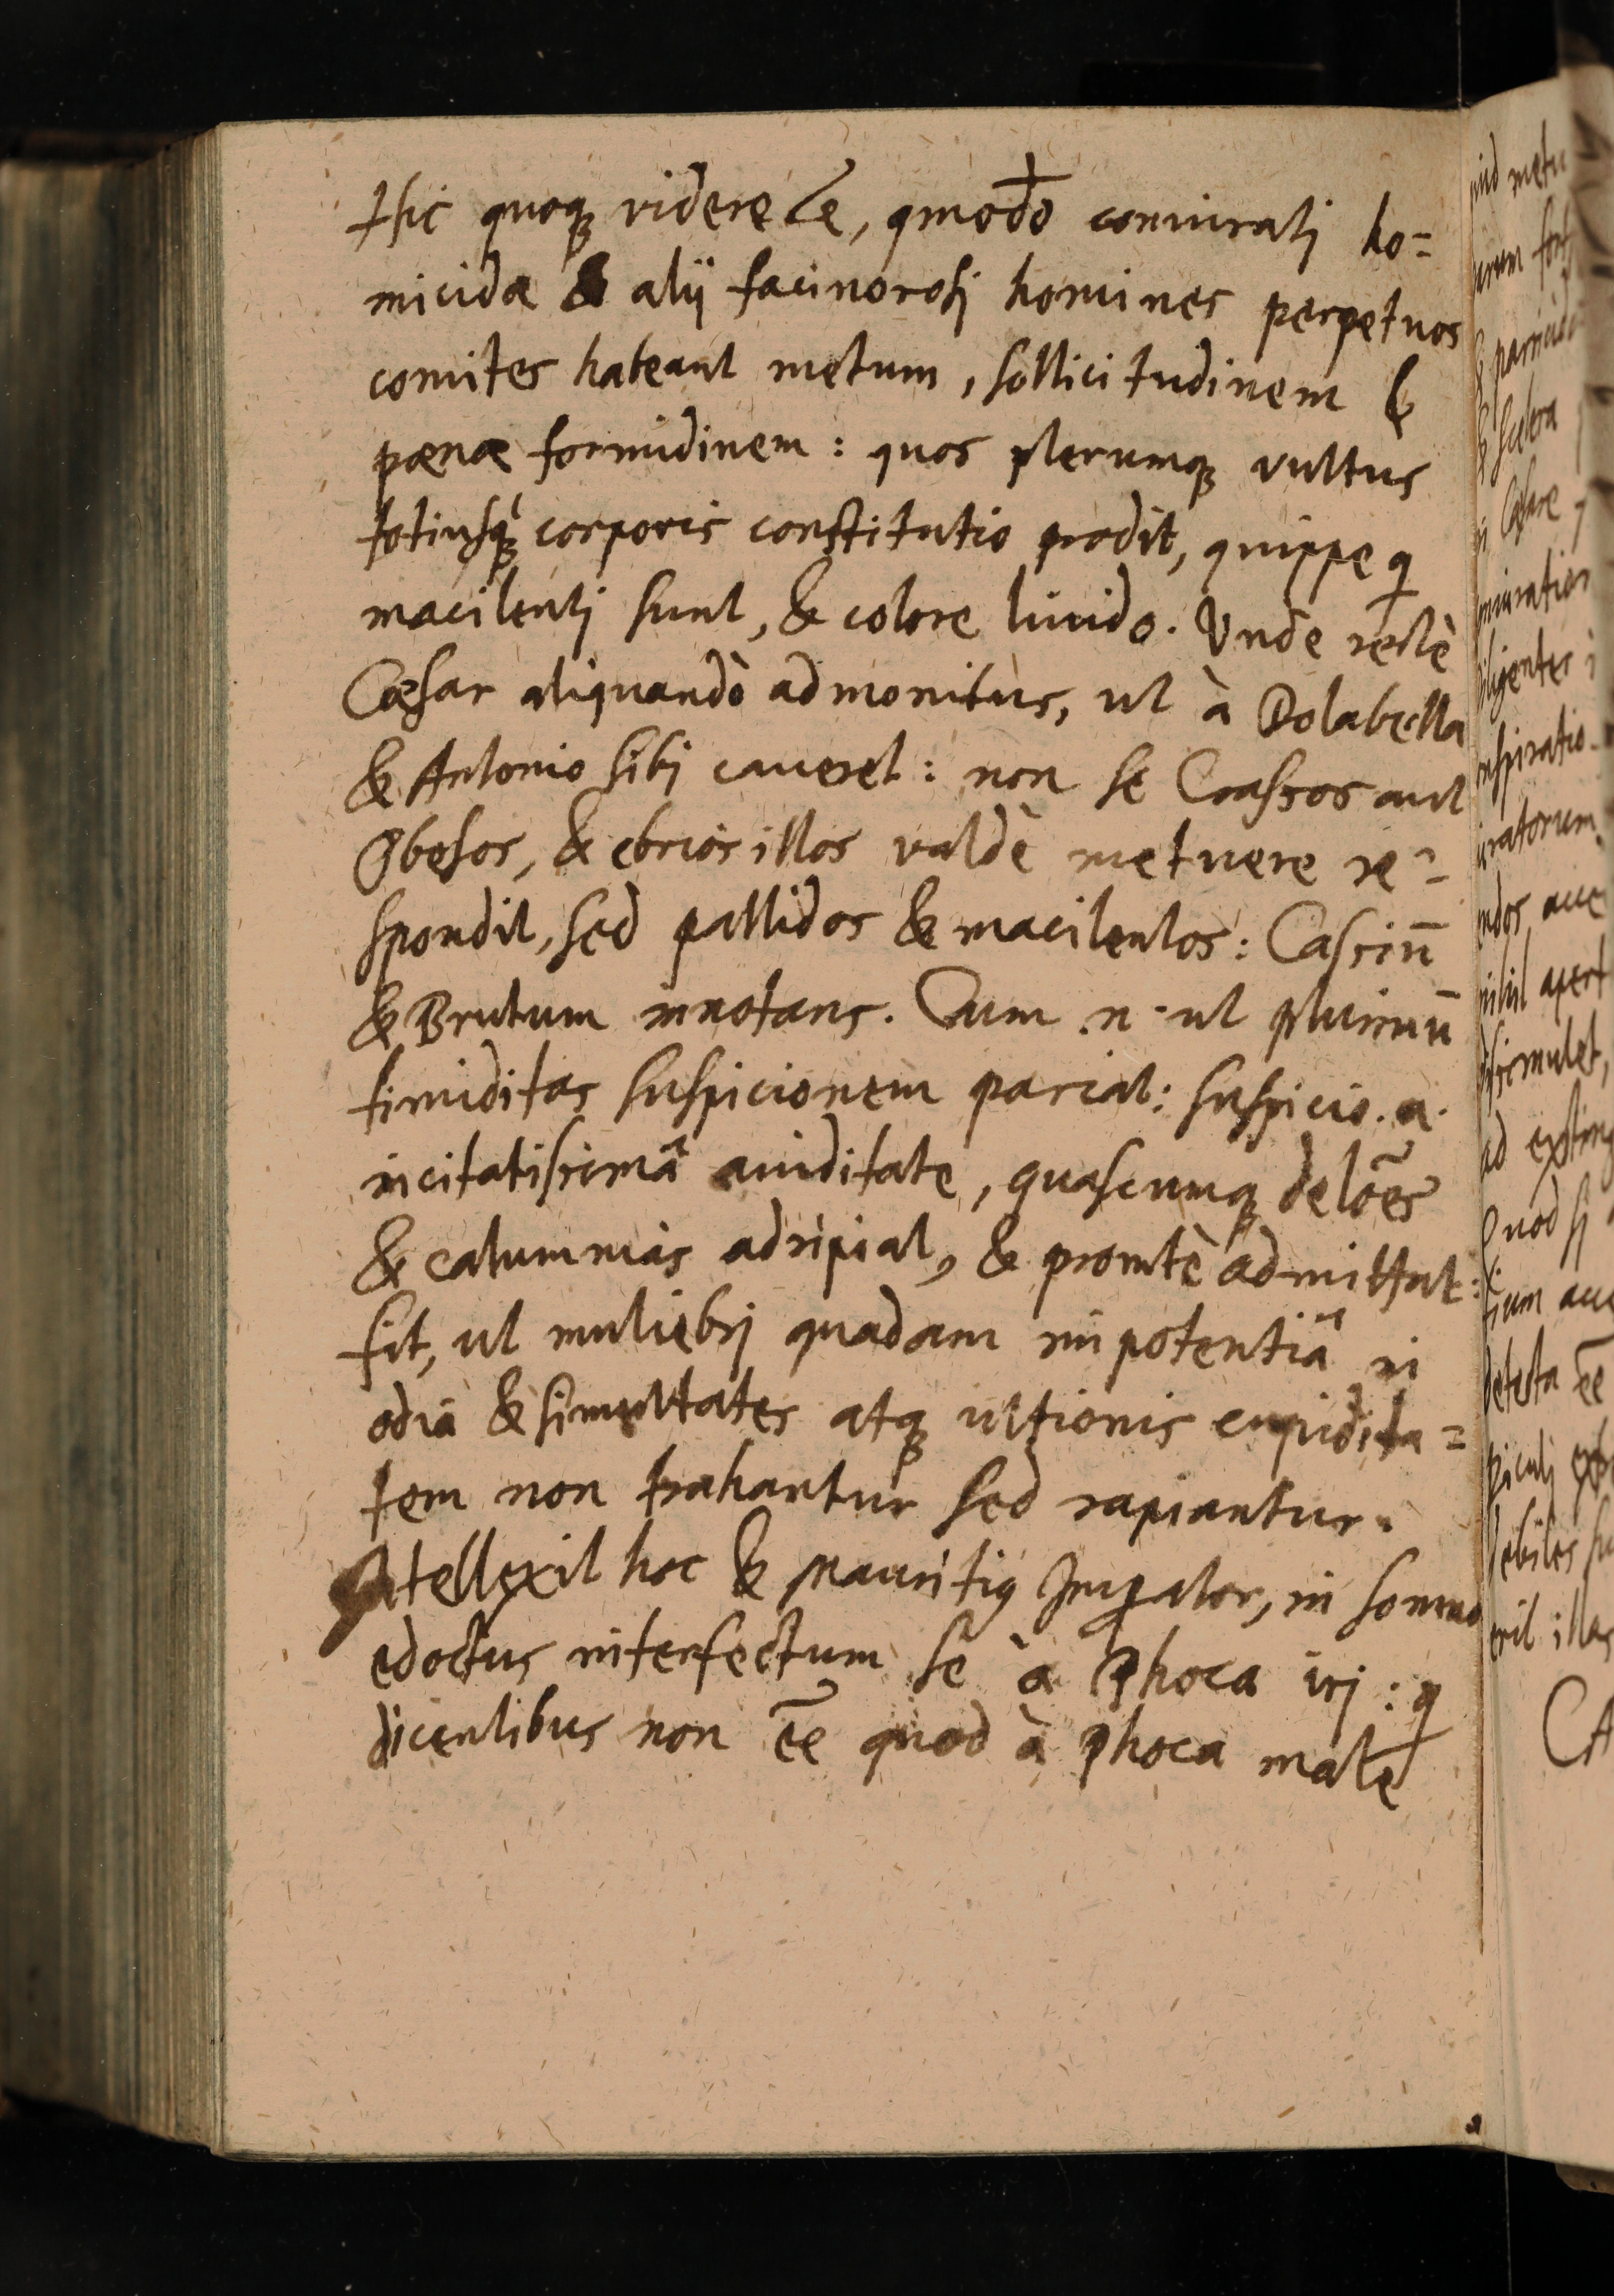 Hic quoq videre ē, qmodo coniurati ho=
micidæ & alij facinorosi homines perpetuos
comites habeant metum, sollicitudinem &
pœnæ formidinem: quos plerumq vultus
totiusq́ corporis constitutio prodit, quippe q
macilenti sunt, & colore liuido. Vnde rectè
Cæsar aliquandò admonitus, ut à Dolabella
& Antonio sibi caueret: non se Crassos aut
Obesos, & ebrios illos valdè metuere re=
spondit, sed pallidos & macilentos: Cassiū
& Brutum innotans. Cum .n. ut plurimū
timiditas suspicionem pariat: suspicio .a.
incitatissimâ auiditate, quascumq delōes
& calumnias adripiat, & promtè admittat:
fit, ut muliebri quadam impotentiâ in
odia & simultates atq ultionis cupidita=
tem non trahantur sed rapiantur.
Intellexit hoc & Mauritiꝰ Imꝑator, in somno
edoctus interfectum se à Phoca iri: q
dicentibus non ēe quod à Phoca male